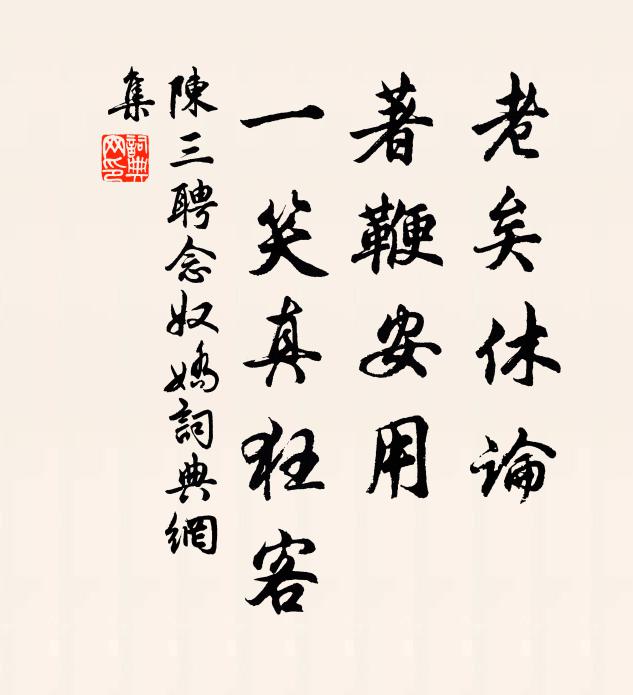 老矣休論
著鞭安用
一笑真狂客
陳三聘念奴嬌詞典網
集
詞典
网印